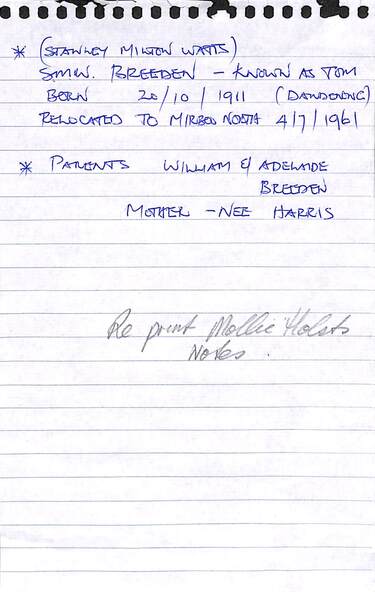 * (STANLEY MILTON WATTS)
S.M.W. BREEDEN - KNOWN AS TOM
BORN 20/10/1911 (DANDENONG)
RELOCATED TO MIRBOO NORTH 4/7/1961
* PARENTS WILLIAM & ADELAIDE
BREEDEN
MOTHER - NEE HARRIS
Re print Mollie Holsts
Notes.